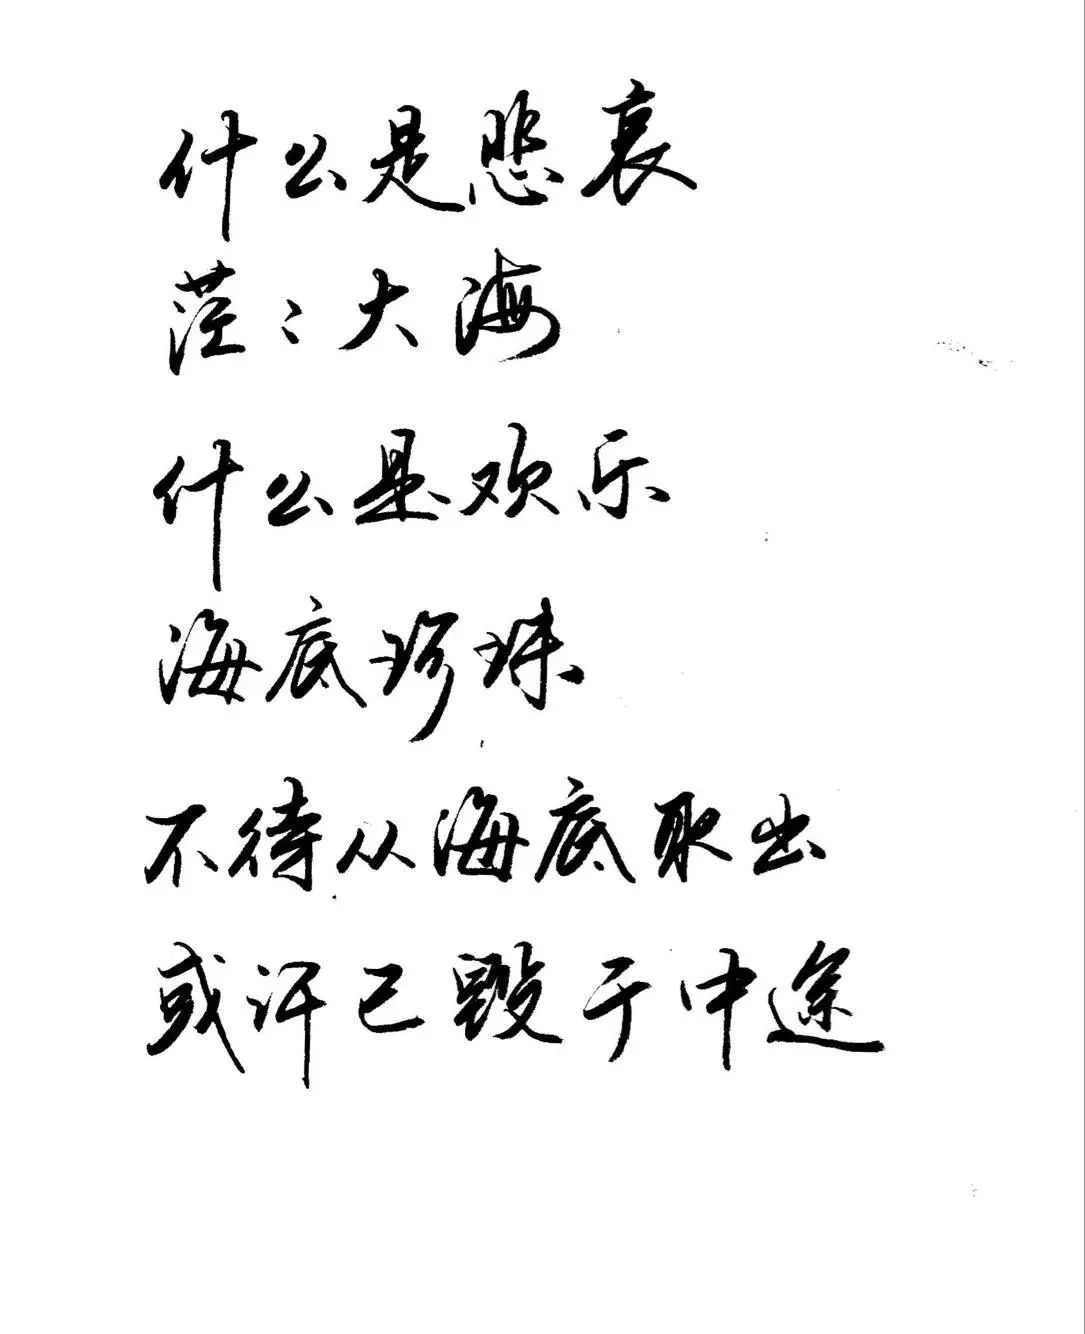 什么是悲哀
茫々大海
什么是欢乐
海底珍珠
不待从海底取出
或许已毁于中途